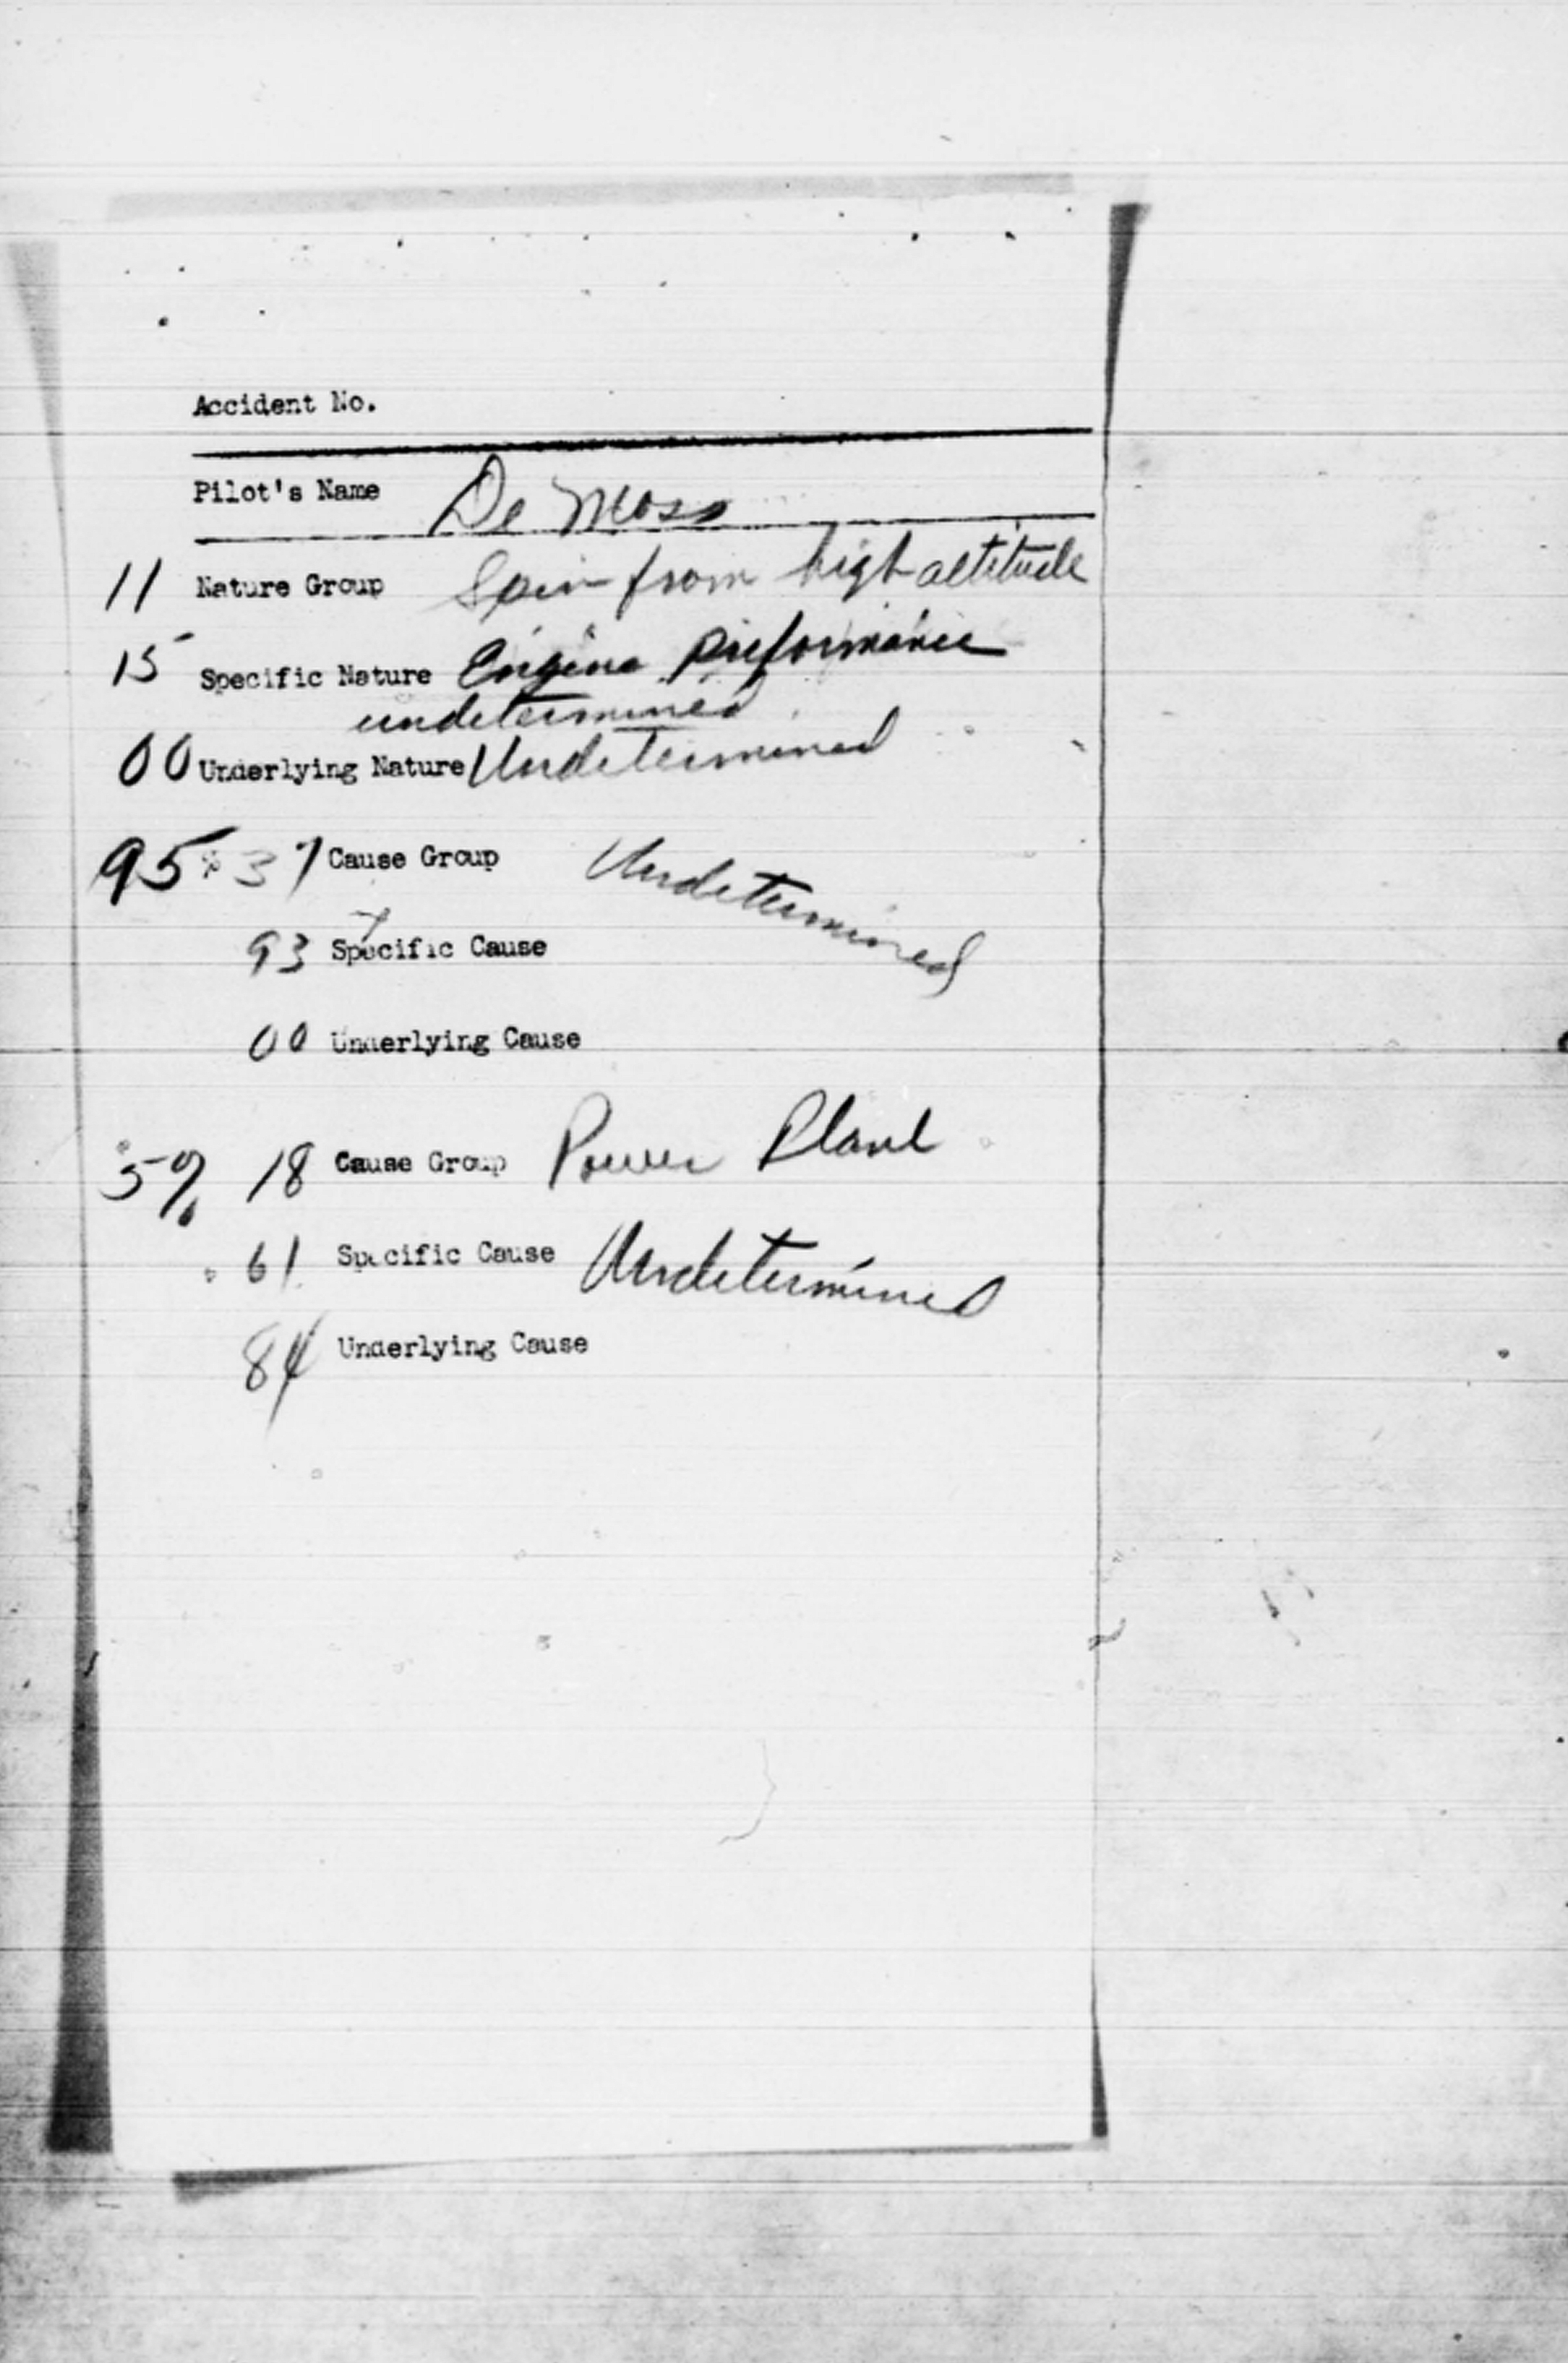 Accident No.
Pilot's Name De Moss
11 Nature Group Spin from high altitude
15 Specific Nature Engine Performance
undetermined
00 Underlying Nature Undetermined
95% 37 Cause Group Undetermined
93 Specific Cause
00 Underlying Cause
5% 18 Cause Group Power Plant
61 Specific Cause Undetermined
84 Underlying Cause